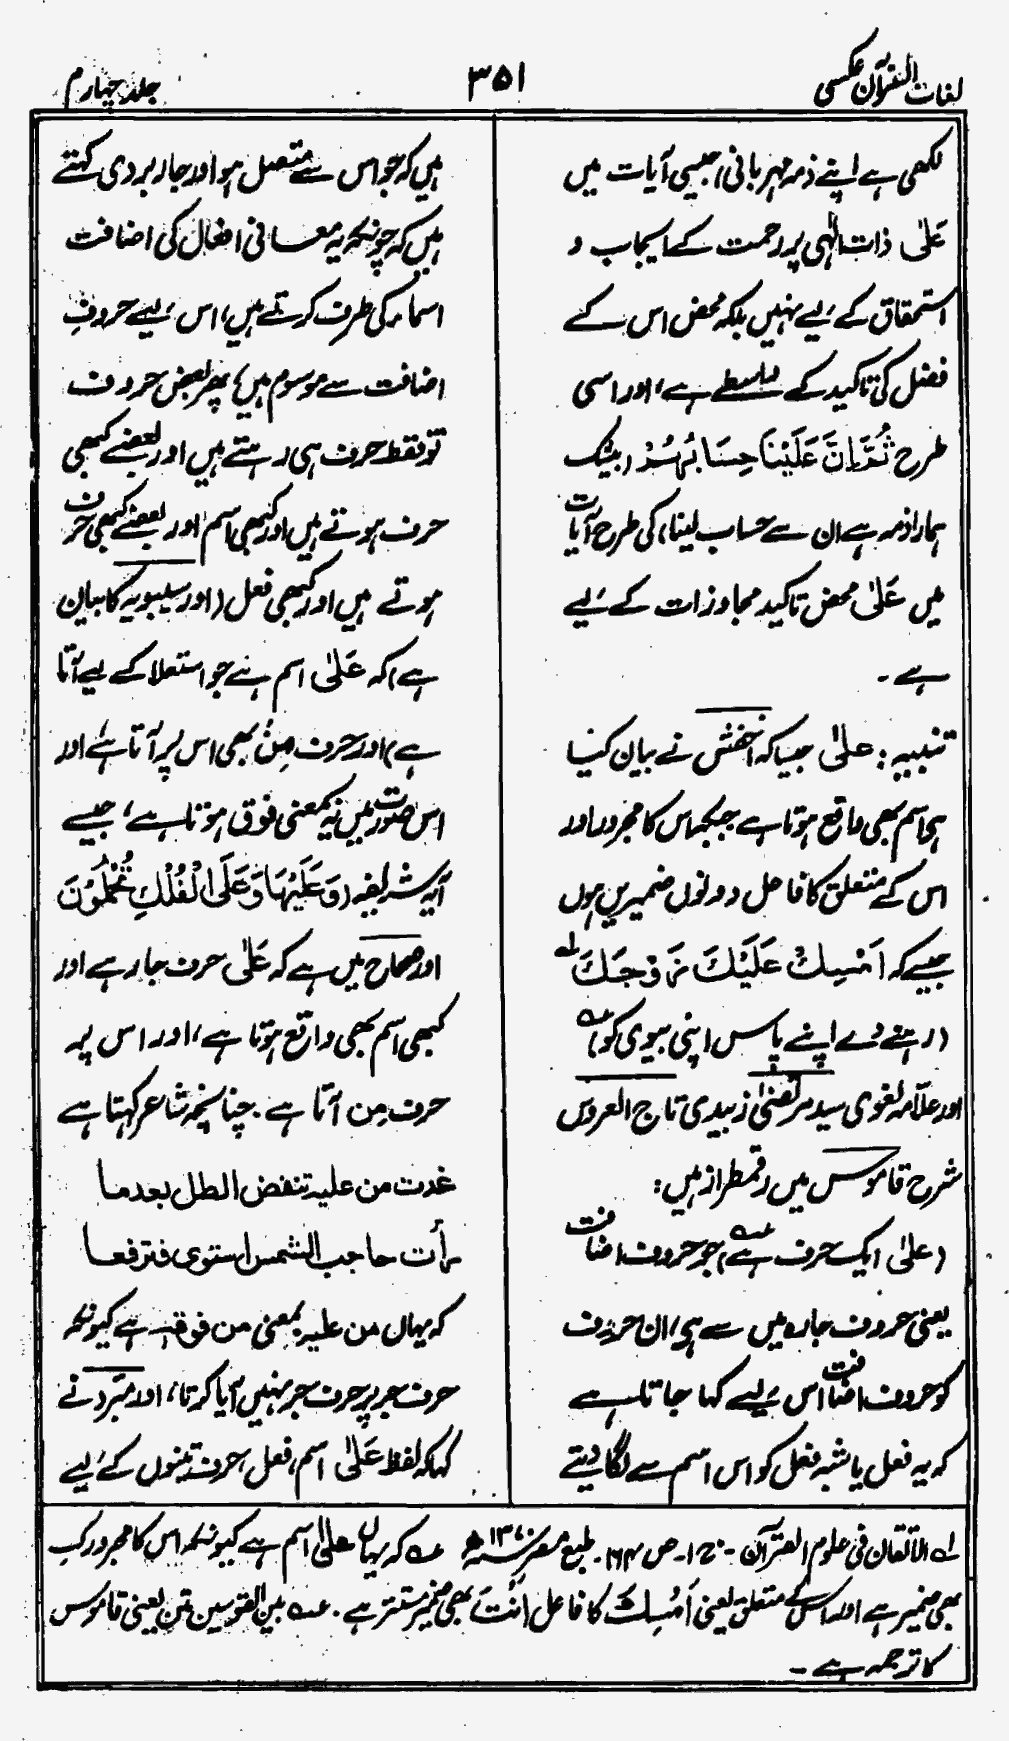 لغات القرآن عکسی
۳۵۱
جلد چہارم
لکھی ہے اپنے ذمہ مہربانی) جیسی آیات میں
عَلٰی ذات الٰہی پر رحمت کے ایجاب و
استحقاق کے لیے نہیں بلکہ محض اس کے
فضل کی تاکید کے واسطے ہے، اور اسی
طرح ثُمَّ اِنَّ عَلَیْنَا حِسَابَہُمْ (بیشک
ہمارا ذمہ ہے ان سے حساب لینا) کی طرح آیات
میں عَلٰی محض تاکید مجاوزات کے لیے
ہے۔
تنبیہ: علیٰ جیسا کہ اخفش نے بیان کیا
ہے اسم بھی واقع ہوتا ہے جبکہ اس کا مجرور اور
اس کے متعلق کا فاعل دونوں ضمیریں ہوں
جیسے کہ اَمْسِکْ عَلَیْکَ زَوْجَکَ لہ
(رہنے دے اپنے پاس اپنی بیوی کو) عہ
اور علامہ لغوی سید مرتضیٰ زبیدی تاج العروس
شرح قاموس میں رقمطراز ہیں:
(علیٰ ایک حرف ہے) عہ جو حروف اضافت
یعنی حروف جارہ میں سے ہے، ان حروف
کو حروف اضافت اس لیے کہا جاتا ہے
کہ یہ فعل یا شبہ فعل کو اس اسم سے لگا دیتے
ہیں کہ جو اس سے متصل ہو اور جاربردی کہتے
ہیں کہ چونکہ یہ معانی افعال کی اضافت
اسماء کی طرف کرتے ہیں، اس لیے حروفِ
اضافت سے موسوم ہیں، پھر بعض حروف
تو فقط حرف ہی رہتے ہیں اور بعضے کبھی
حرف ہوتے ہیں اور کبھی اسم اور بعضے کبھی حرف
ہوتے ہیں اور کبھی فعل (اور سیبویہ کا بیان
ہے) کہ عَلٰی اسم ہے جو استعلا کے لیے آتا
ہے) اور حرف مِنْ بھی اس پر آتا ہے اور
اس صورت میں یہ بمعنی فوق ہوتا ہے، جیسے
آیہ شریفہ (وَعَلَیْہَا وَعَلَی الْفُلْکِ تُحْمَلُوْنَ
اور صحاح میں ہے کہ عَلٰی حرف جار ہے اور
کبھی اسم بھی واقع ہوتا ہے، اور اس پر
حرف مِن آتا ہے۔ چنانچہ شاعر کہتا ہے
غدت من علیہ تنفض الطل بعد ما
رأت حاجب الشمس استوی فترفعا
کہ یہاں من علیہ بمعنی من فوقہ ہے کیونکہ
حرف جر پر حرف جر نہیں آیا کرتا، اور مبرد نے
کہا کہ لفظ عَلٰی اسم، فعل، حرف تینوں کے لیے
لہ الاتقان فی علوم القرآن۔ ج ۱۔ ص ۱۶۴۔ طبع مصر ۱۳۷۰ھ عہ کہ یہاں علیٰ اسم ہے کیونکہ اس کا مجرور ک
بھی ضمیر ہے اور اس کے متعلق یعنی اَمْسِکْ کا فاعل اَنْتَ بھی ضمیر مستتر ہے۔ عہ بین القوسین متن یعنی قاموس
کا ترجمہ ہے۔